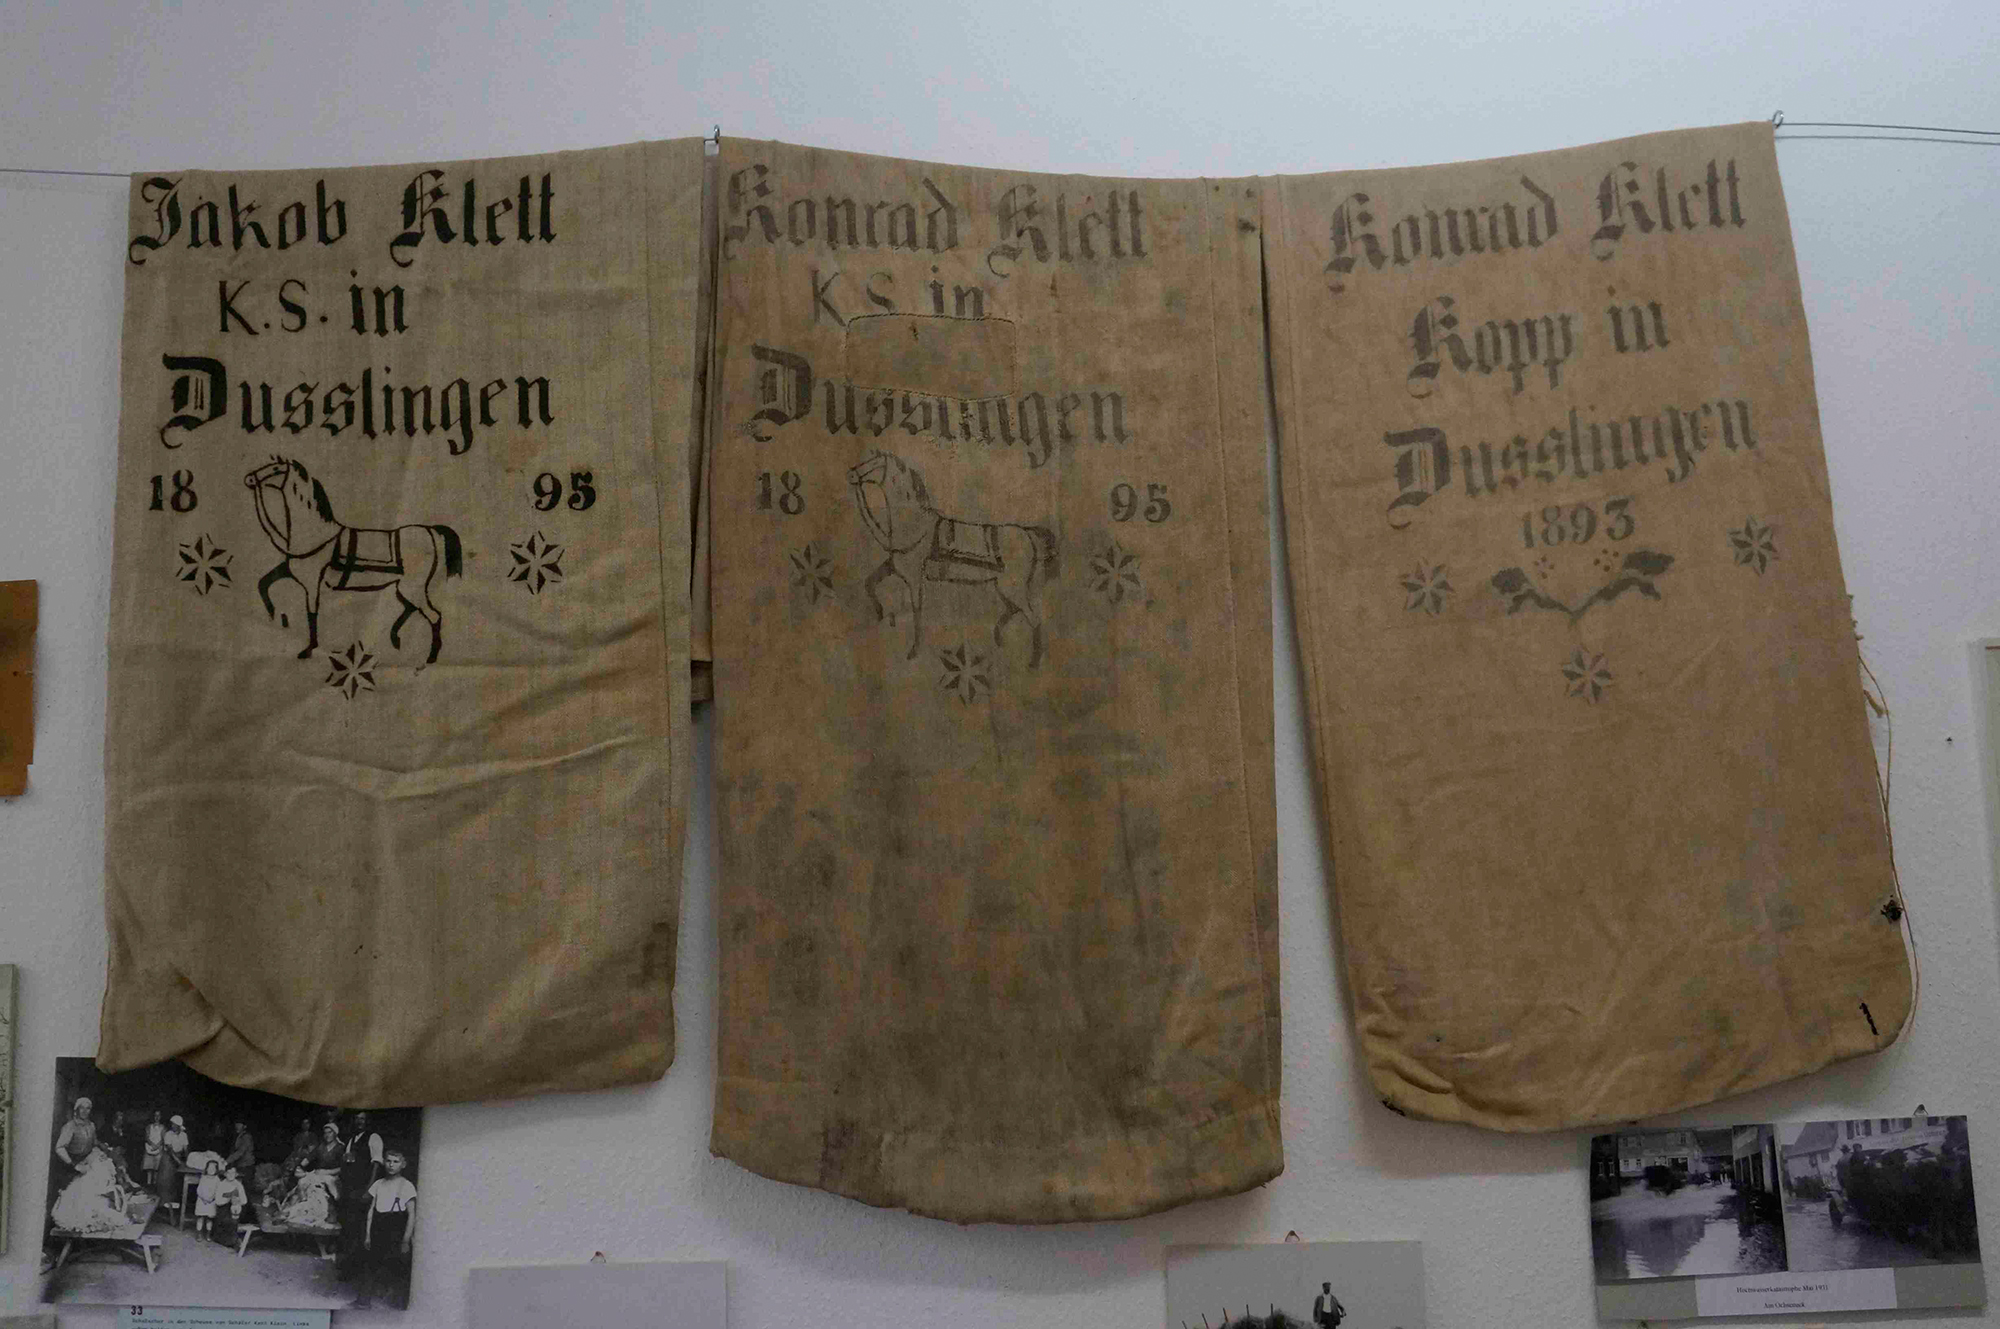 Jakob Klett
K.S. in
Dusslingen
18 95
Konrad Klett
K S in
Dusslingen
18 95
Konrad Klett
Kopp in
Dusslingen
1893
33
Hochwasserkatastrophe Mai 1931
Am Ochseneck